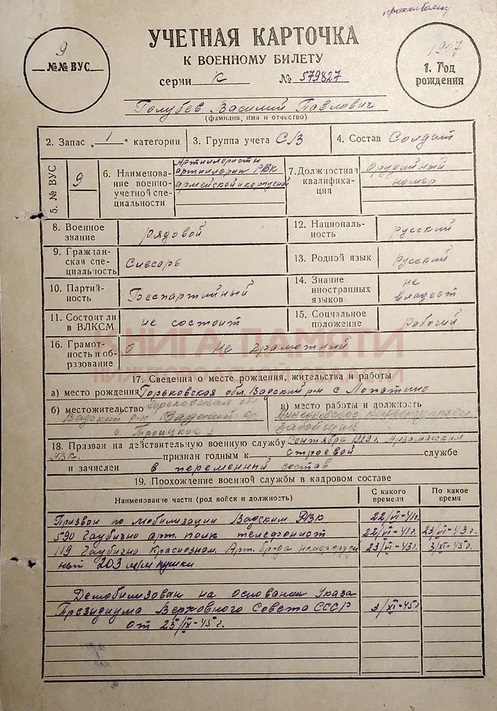 9
№№ ВУС
УЧЕТНАЯ КАРТОЧКА
К ВОЕННОМУ БИЛЕТУ
серии К № 579827
1907
1. Год
рождения
Голубев Василий Павлович
(фамилия, имя и отчество)
2. Запас 1 категории 3. Группа учета С/В 4. Состав Солдат
5. № ВУС 9
6. Наименование военно-
учетной специальности
Артиллеристы
артиллерии РВК
армейской и корпусной
7. Должностная
квалификация
Орудийный
номер
8. Военное
звание
рядовой
12. Националь-
ность
русский
9. Граждан-
ская спе-
циальность
Слесарь
13. Родной язык
Русский
10. Партий-
ность
Беспартийный
14. Знание
иностранных
языков
не
владеет
11. Состоял ли
в ВЛКСМ
не состоит
15. Социальное
положение
Рабочий
16. Грамот-
ность и об-
разование
0 не грамотный
КНИГА ПАМЯТИ
17. Сведения о месте рождения, жительства и работы
а) место рождения Горьковская обл. Вадский р-н с Лопатино
б) местожительство Горьковская обл
Вадский р-н
в) место работы и должность
18. Призван на действительную военную службу сентября
РВК признан годным к строевой службе
и зачислен в переменный состав
19. Прохождение военной службы в кадровом составе
Наименование части (род войск и должность)
С какого
времени
По какое
время
Призван по мобилизации Вадским РВК 22/VI-41г.
590 Гаубично арт. полк телефонист 22/VI-41г 23/VI-43г.
119 Гаубично Краснознам. Арт. бригада 23/VI-43г. 3/XI-45г.
203 м/м пушки
Демобилизован на основании Указа
Президиума Верховного Совета СССР 3/XI-45г.
от 25/IX-45г.